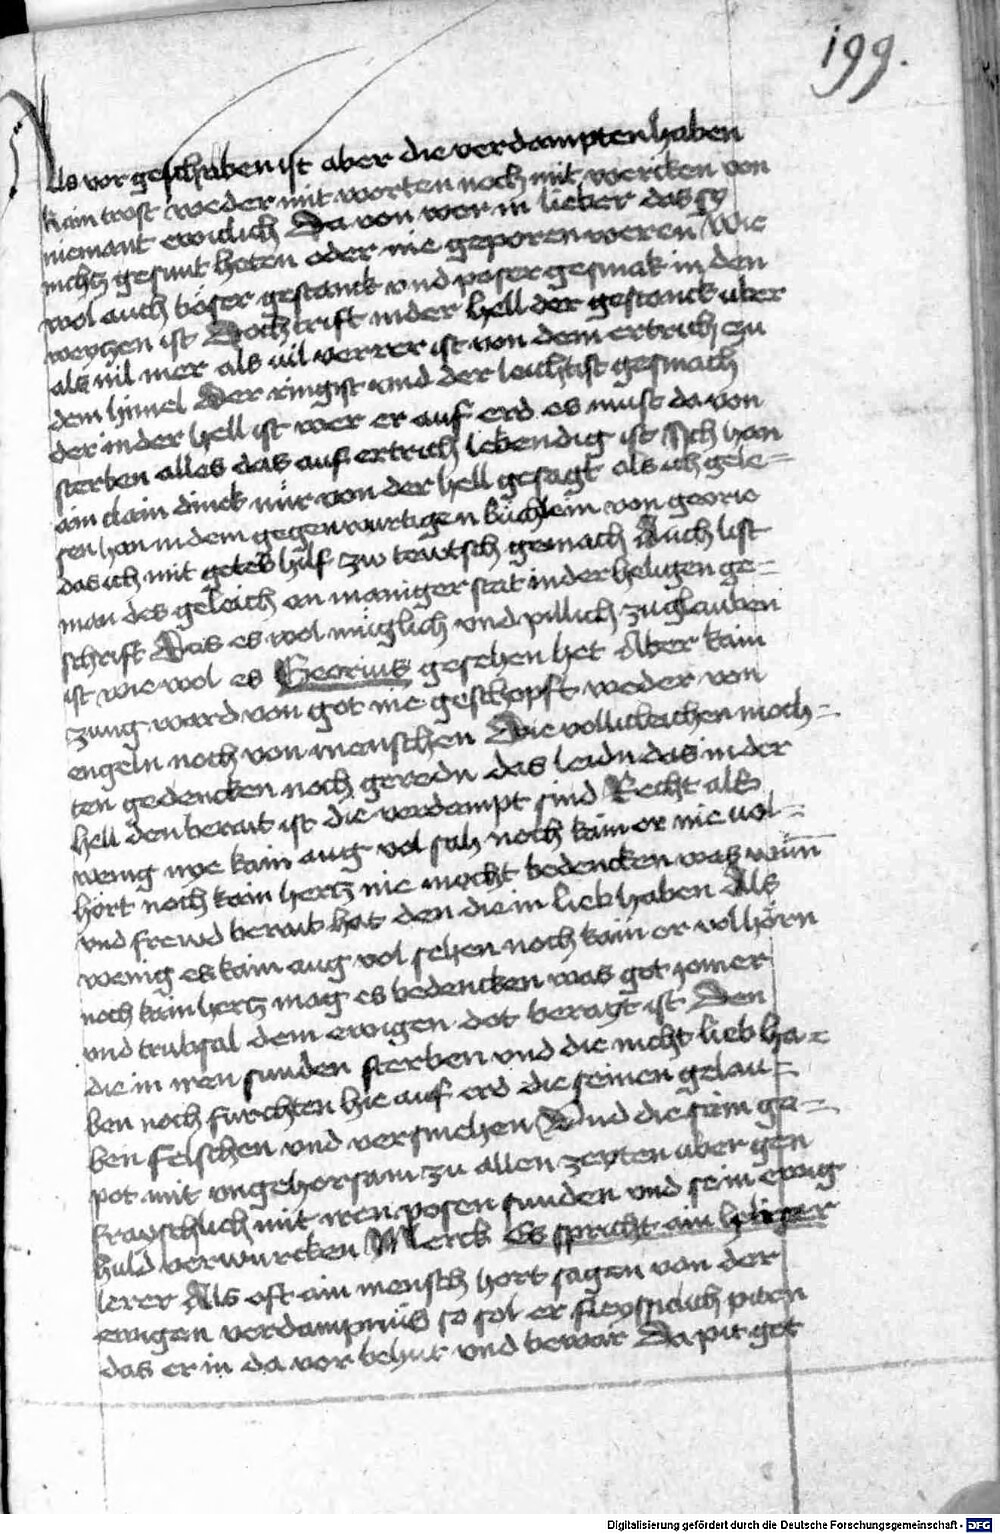 199.
Als vor geschriben ist aber die verdampten haben
kain trost weder mit worten noch mit wercken von
niemant ewiclich Da von wer in lieber das sy
nichtz gesunt heten oder nie geporen weren Wie
wol auch böser gestanck vnd poser gesmak in den
weyczen ist Doch trift in der hell der gestanck vber
als vil mer als vil verrer ist von dem ertrich zu
dem himel Der ringist vnd der leichtist gesmach
der in der hell ist wer er auf erd es must da von
sterben alles das auf ertrich lebendig ist Ich han
ain clain dinck nür von der hell gesagt als ich gele=
sen han in dem gegenwurtigen büchlein von georio
das ich mit gotes hilf zw tewtsch gemach Auch list
man des geleich an maniger stat in der heligen ge=
schrift Das es wol müglich vnd pillich zuglauben
ist wie wol es Georius gesehen het Aber kain
zung ward von got nie geschopft weder von
engeln noch von menschen Die volliclichen moch=
ten gedencken noch geredn das leidn das in der
hell den berait ist die verdampt sind Recht als
wenig wye kain aug vol sah noch kain or nie vol=
hort noch kain hertz nie mocht bedencken was wün
vnd frewd berait hat den die in lieb haben Als
wenig es kain aug vol sehen noch kain or vol hörn
noch kain hertz mag es bedencken was got jomer
vnd trubsal dem ewigen dot berayt ist Den
die in iren sunden sterben vnd die nicht lieb ha=
ben noch furchten hie auf erd die seinen gelau=
ben felschen vnd versmehen Vnd die sein ge=
pot mit vngehorsam zu allen zeyten vber gen
frayschlich mit iren posen sunden vnd sein ewig
huld verwurcken Merck Es spricht ain heliger
lerer Als oft ain mensch hort sagen von der
ewigen verdampnüs so sol er fleyssiclich piten
das er in da vor behut vnd bewar Da pit got
Digitalisierung gefördert durch die Deutsche Forschungsgemeinschaft - DFG